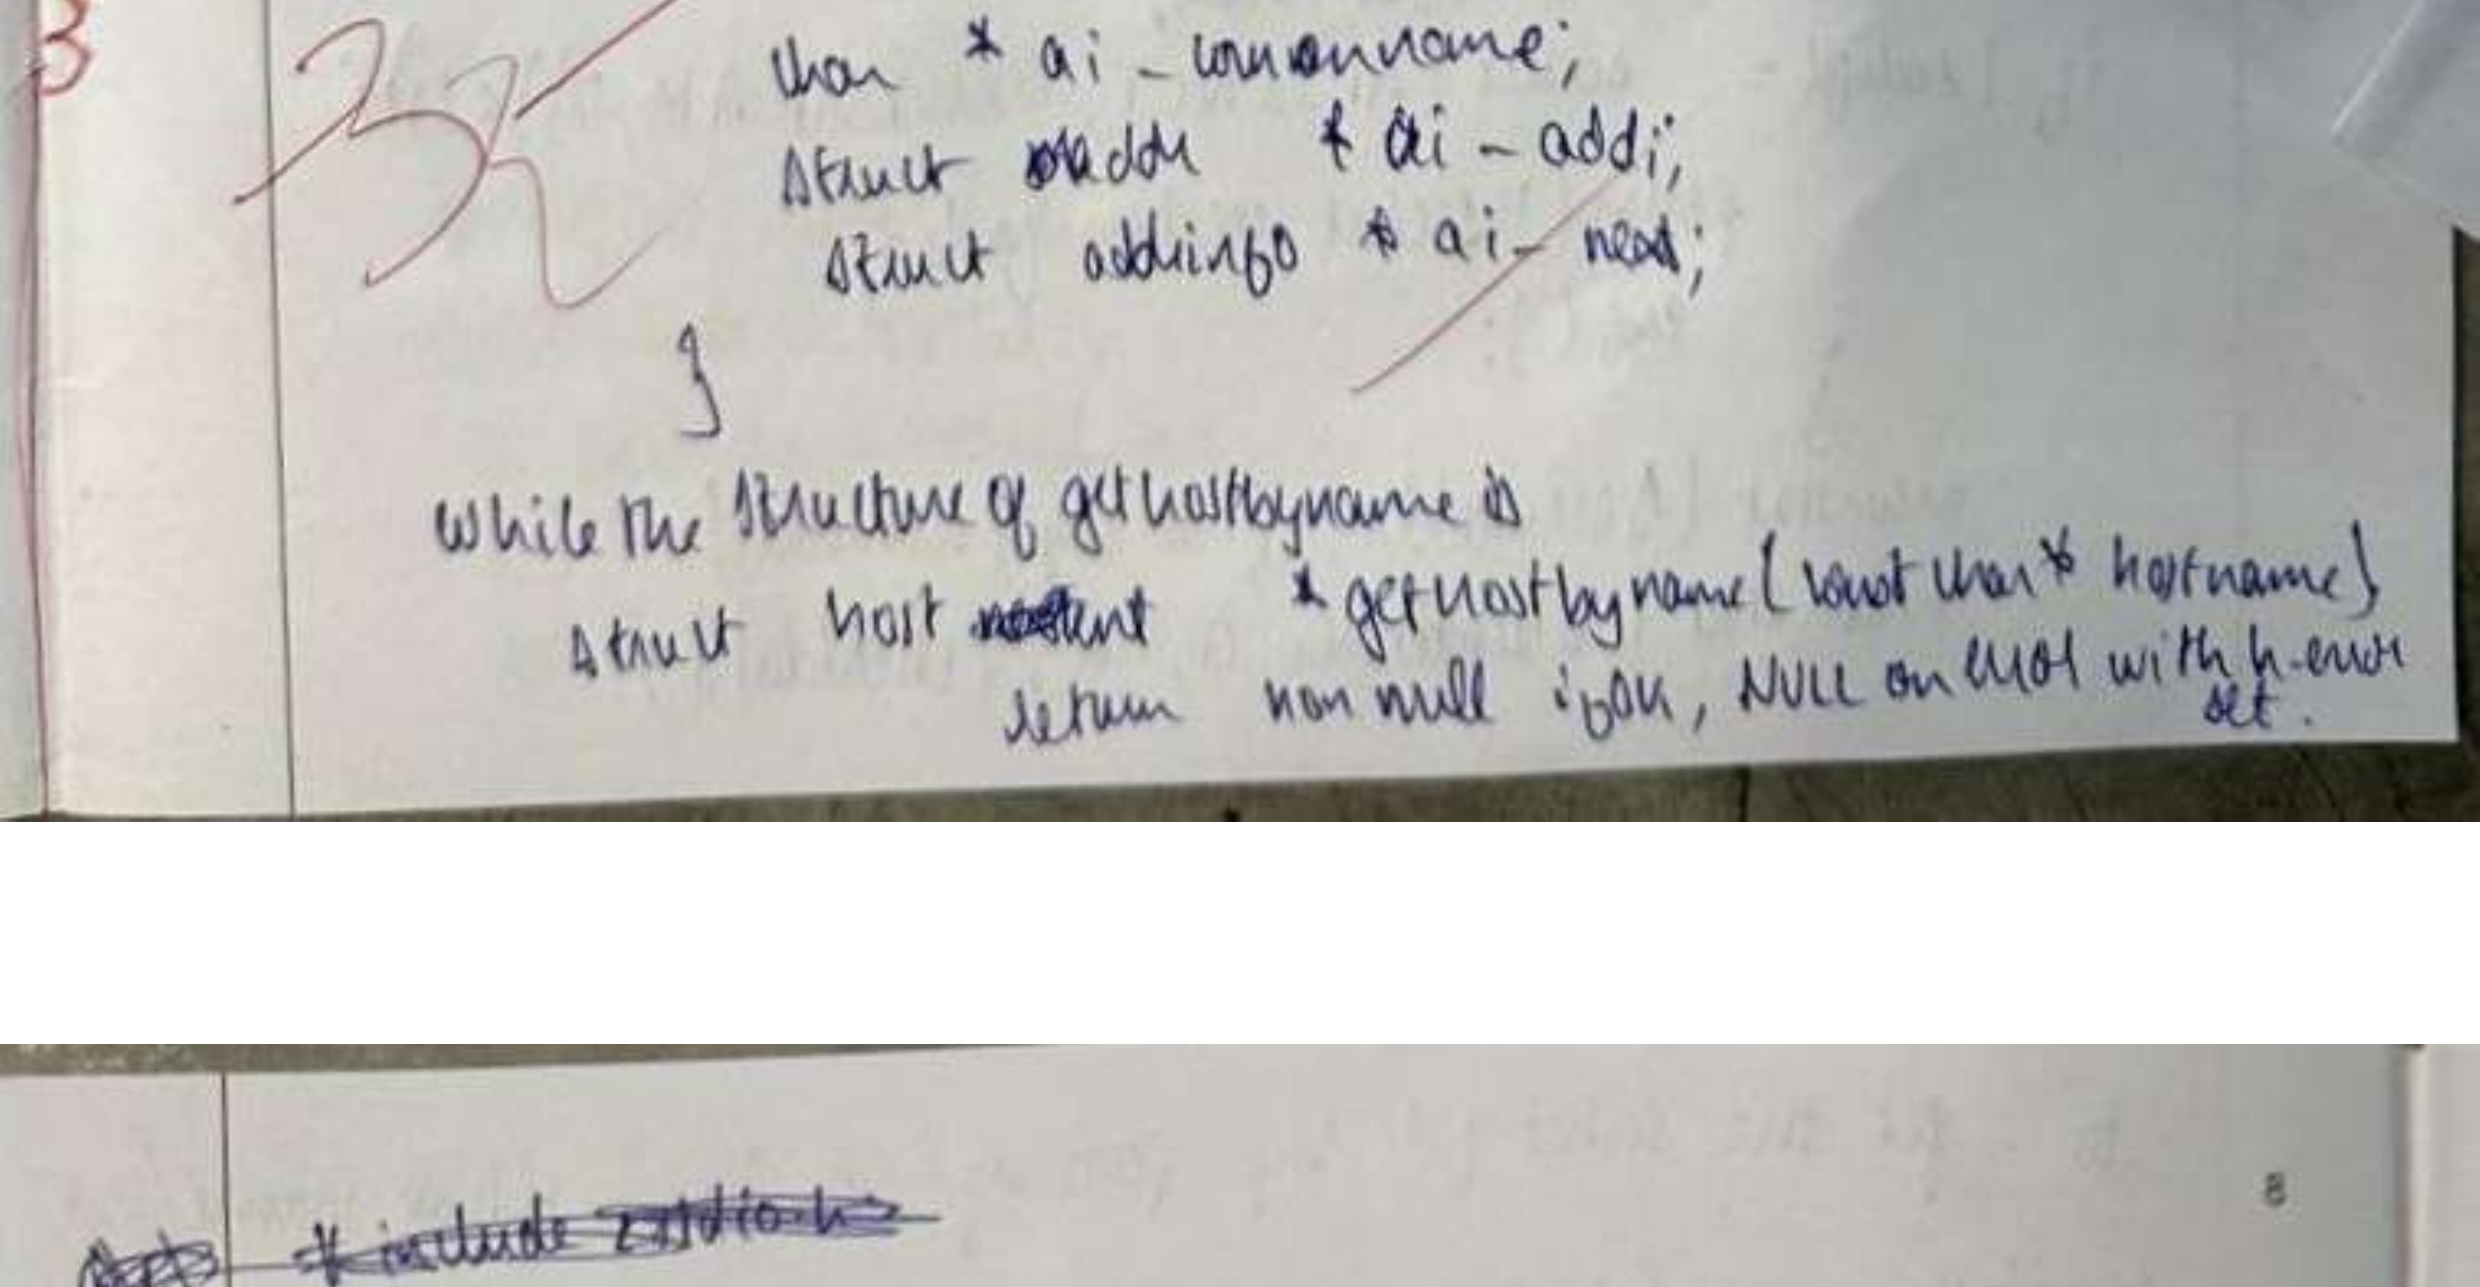 3
32
char * ai - cononname;
struct addr * ai - addi;
struct addrinfo * ai - next;
}
while the structure of gethostbyname is
struct host ent * gethostbyname (const char * hostname)
return non null if OK, NULL on error with h-error
set.
8
# include <stdio.h>